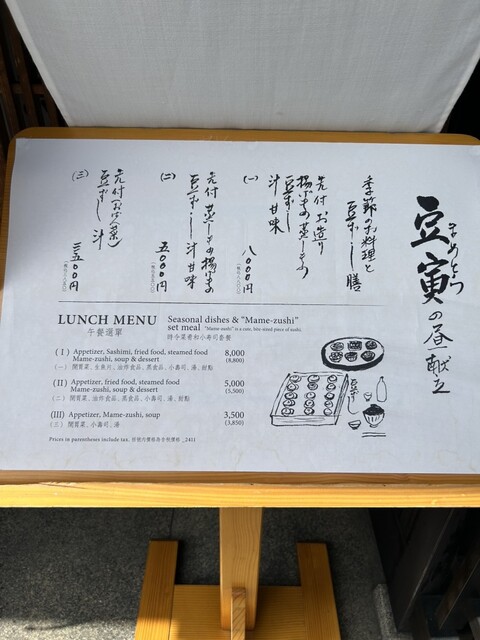 豆寅の昼献立
まめとら
季節のお料理と
豆ずし膳
(一)
先付 お造り
揚げもの 蒸しもの
豆ずし
汁 甘味
八〇〇〇円
(二)
先付 蒸しもの 揚げもの
豆ずし 汁 甘味
五〇〇〇円
(三)
先付(おばんざい)
豆ずし 汁
三五〇〇円
LUNCH MENU
午餐選單
Seasonal dishes & "Mame-zushi"
set meal "Mame-zushi" is a cute, bite-sized piece of sushi.
時令菜肴和小寿司套餐
( I ) Appetizer, Sashimi, fried food, steamed food 8,000
Mame-zushi, soup & dessert (8,800)
(一) 開胃菜、生魚片、油炸食品、蒸食品、小壽司、湯、甜點
(II) Appetizer, fried food, steamed food 5,000
Mame-zushi, soup & dessert (5,500)
(二) 開胃菜、油炸食品、蒸食品、小壽司、湯、甜點
(III) Appetizer, Mame-zushi, soup 3,500
(三) 開胃菜、小壽司、湯 (3,850)
Prices in parentheses include tax.
_2411
豆ずし